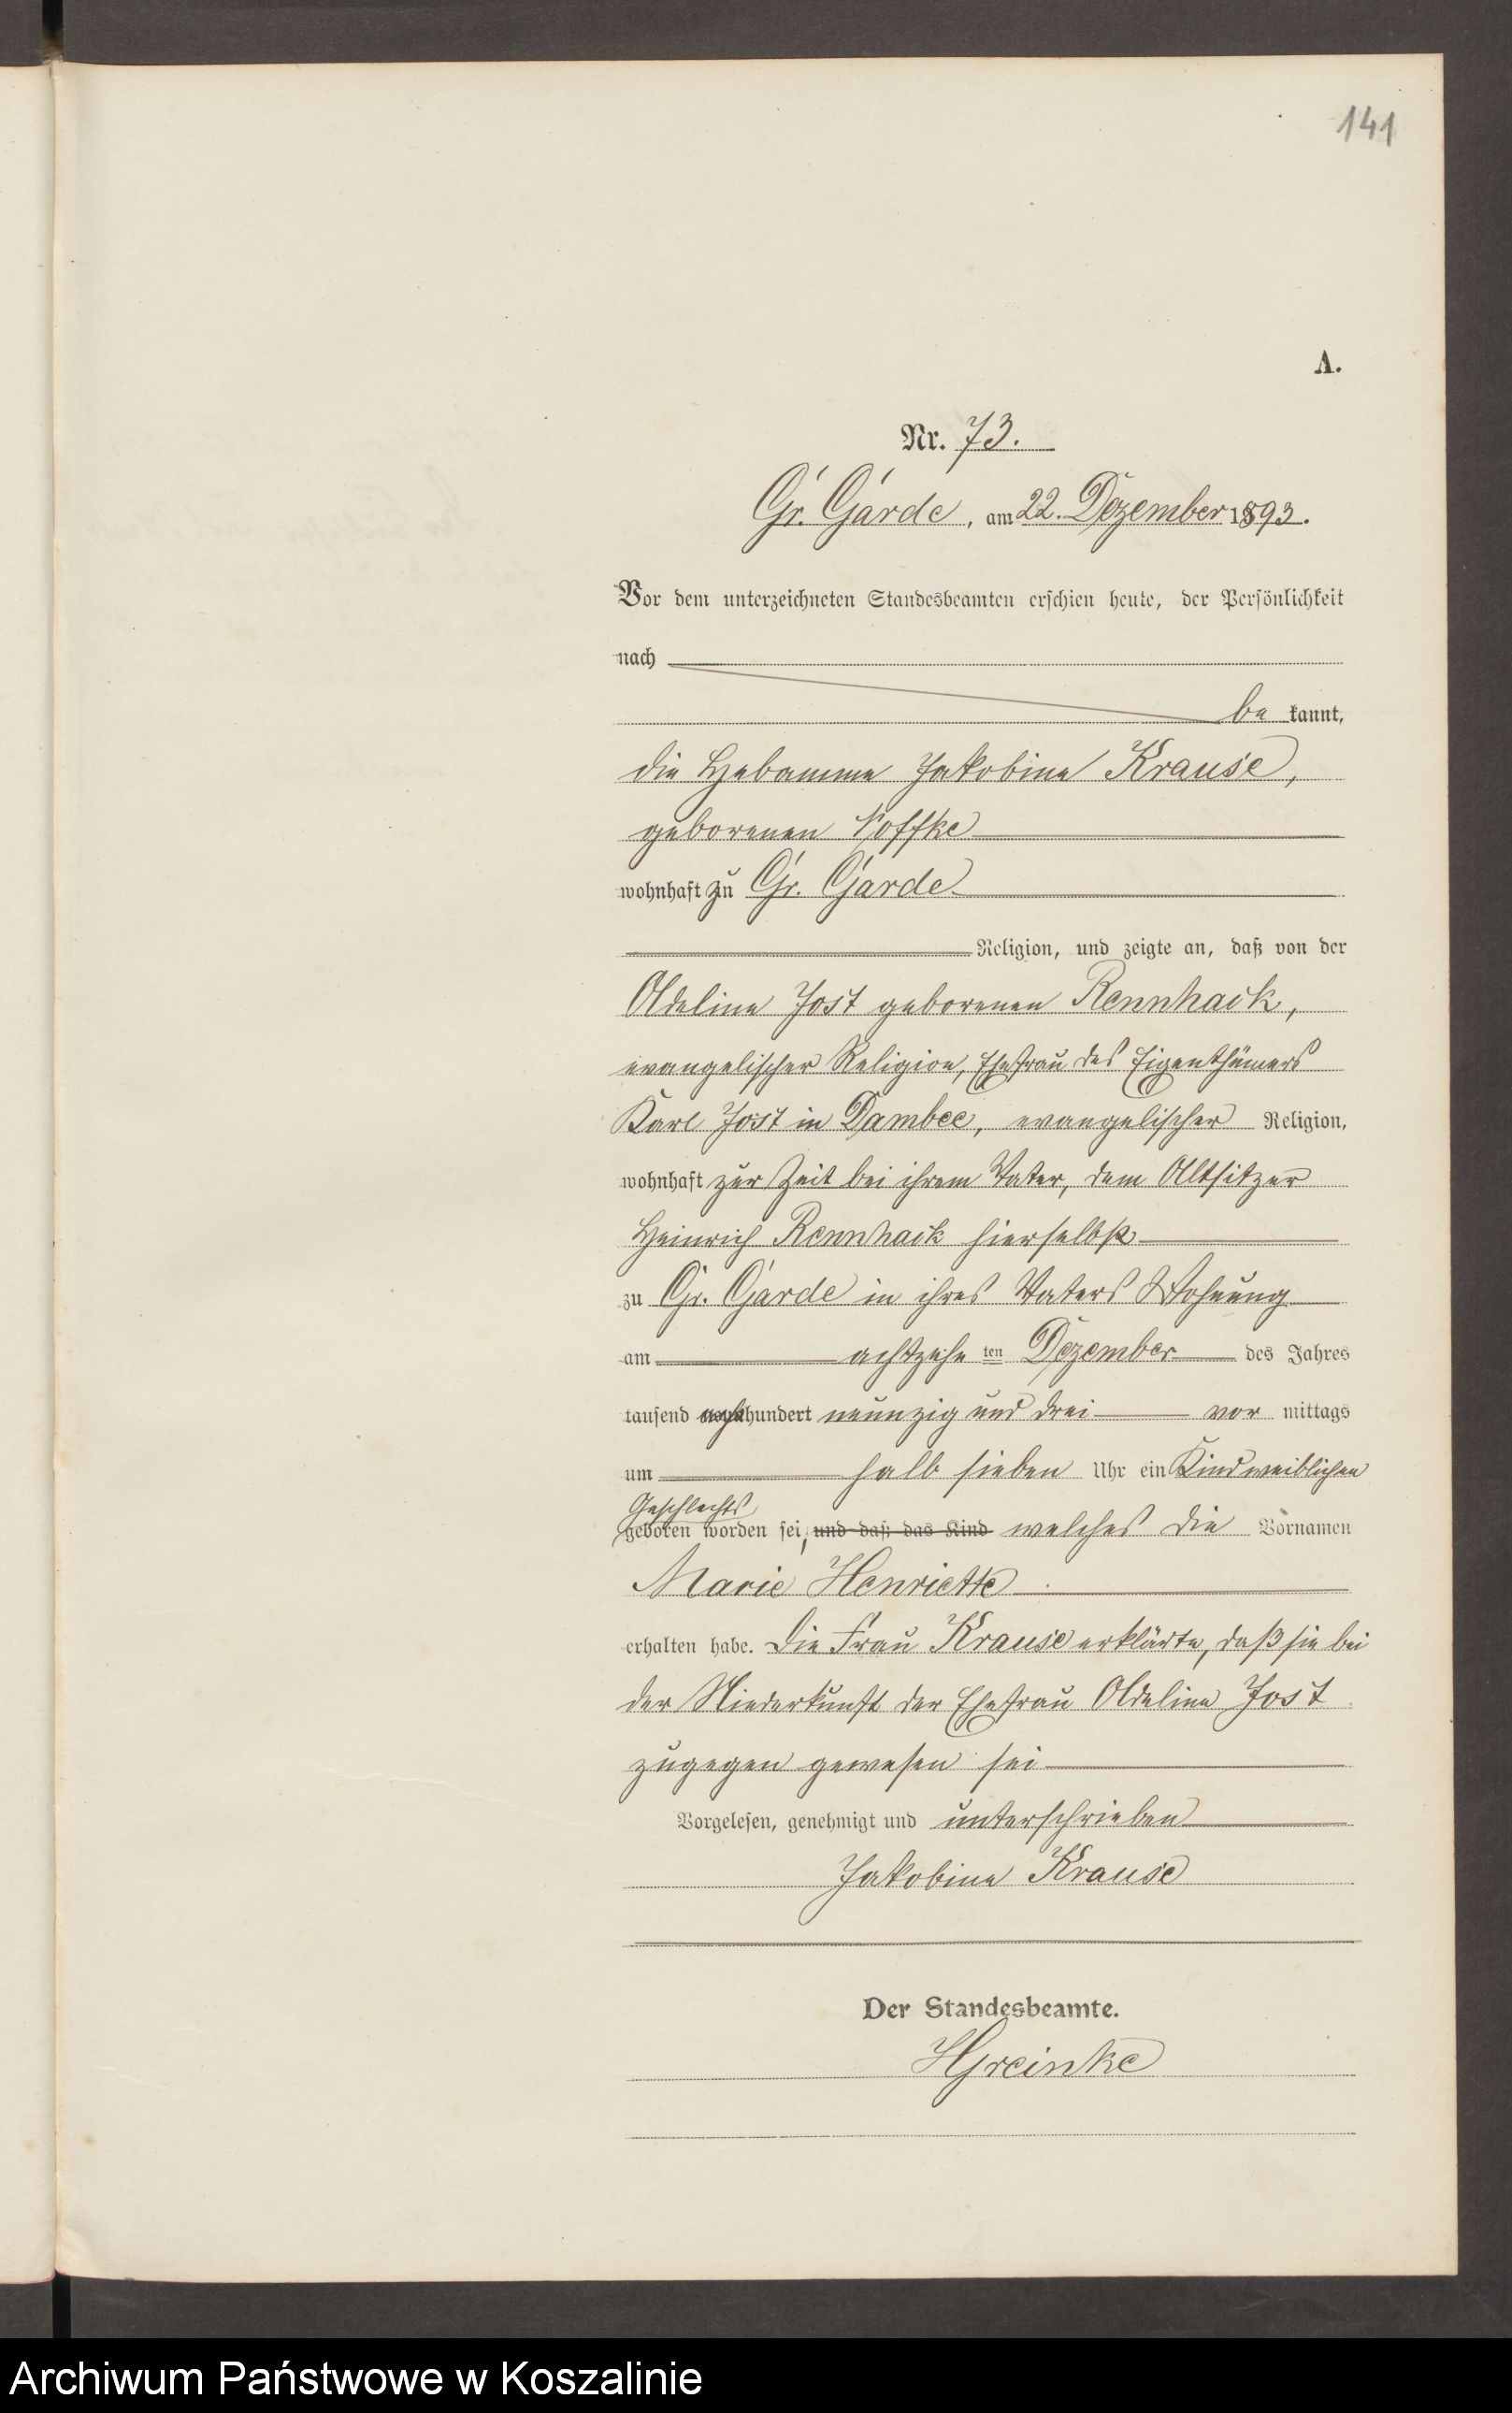 141
A.
Nr. 73.
Gr. Garde, am 22. Dezember 1893.
Vor dem unterzeichneten Standesbeamten erschien heute, der Persönlichkeit
nach
be kannt,
die Hebamme Jakobine Krause,
geborenen Koffke
wohnhaft zu Gr. Garde
Religion, und zeigte an, daß von der
Adeline Jost geborenen Rennhack,
evangelischer Religion, Ehefrau des Eigenthümers
Karl Jost in Dambee, evangelischer Religion,
wohnhaft zur Zeit bei ihrem Vater, dem Altsitzer
Heinrich Rennhack hierselbst
zu Gr. Garde in ihres Vaters Wohnung
am achtzehn ten Dezember des Jahres
tausend achthundert neunzig und drei vor mittags
um halb sieben Uhr ein Kind weiblichen
Geschlechts
geboren worden sei, und daß das Kind welches die Vornamen
Marie Henriette
erhalten habe. Die Frau Krause erklärte, daß sie bei
der Niederkunft der Ehefrau Adeline Jost
zugegen gewesen sei
Vorgelesen, genehmigt und unterschrieben
Jakobine Krause
Der Standesbeamte.
HGreinke
Archiwum Państwowe w Koszalinie